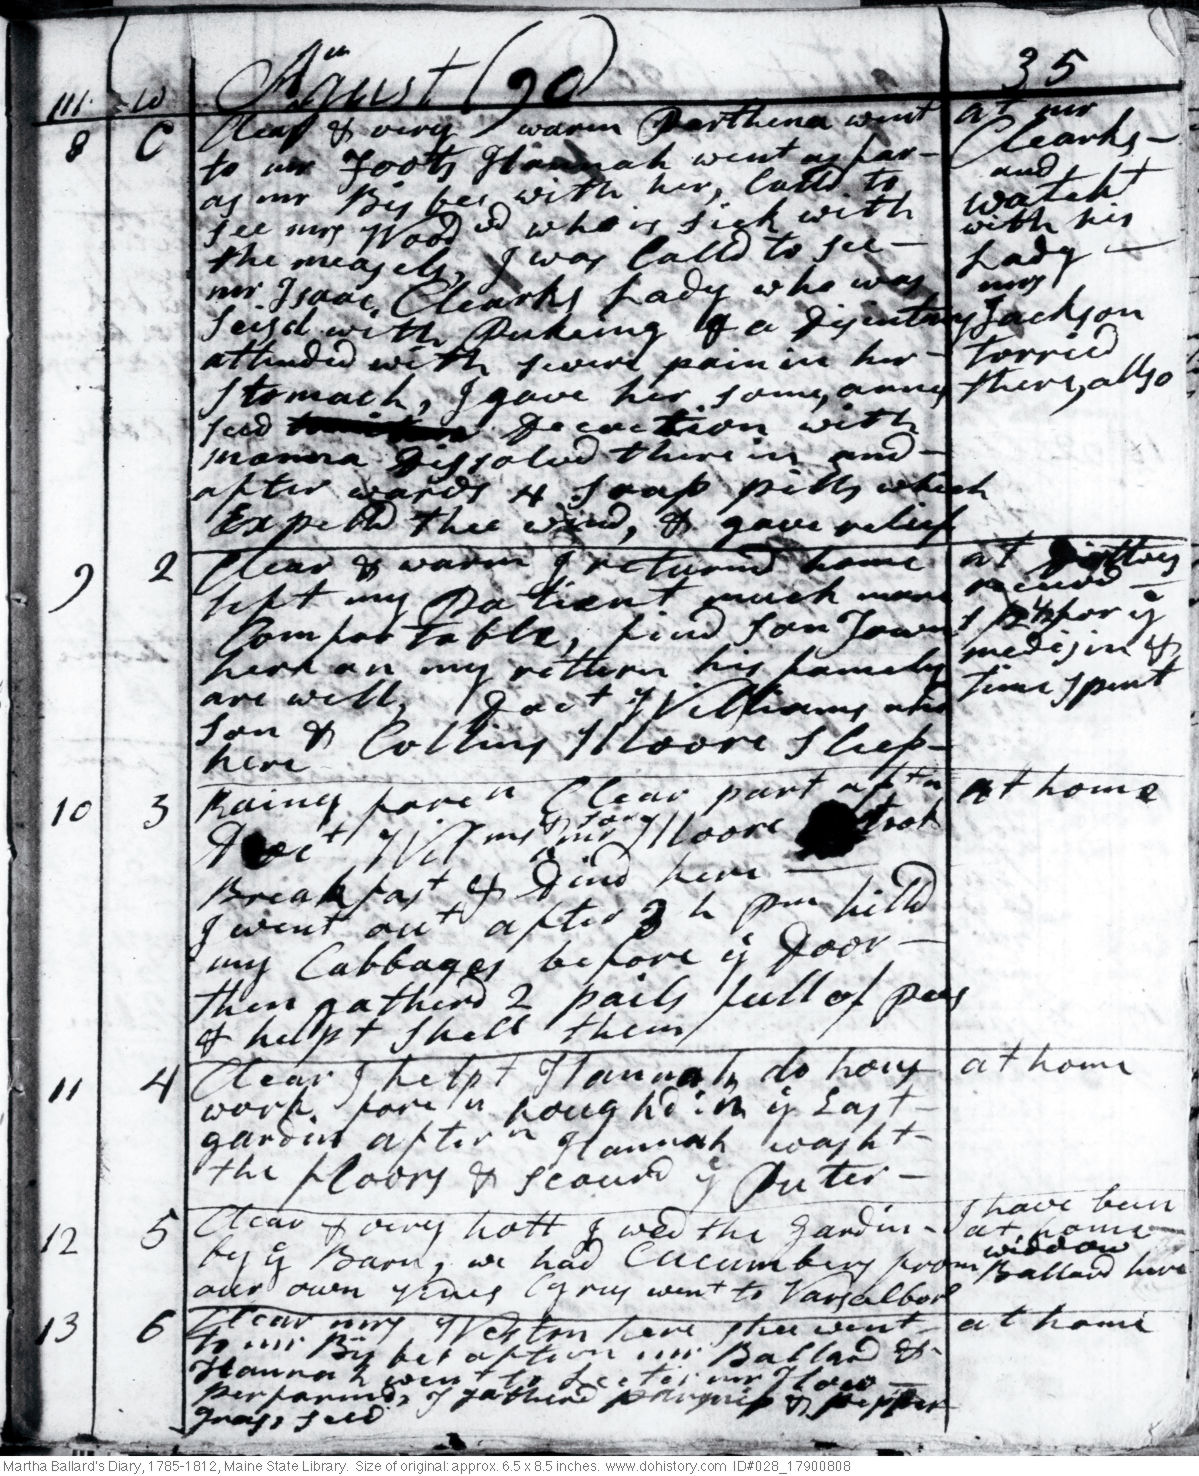 August 90 35
m w
8 C Clear & very warm Parthena went
to mr Foots Hannah went as far
as mr Bisbes with her, Calld to
see mrs Wood who is sick with
the measels, I was Calld to see
mr Isaac Clearks Lady who was
seisd with Puking & a Disentary
attended with severe pain in her
stomach, I gave her some annis
seed Decoction with
manna Dissolvd there in and
after wards 4 soap pills which
Expelld thee wind, & gave relief
at mr
Clearks
and
watcht
with his
Lady
mrs
Jackson
tarried
there, allso
9 2 Clear & warm I returnd home
left my Patient much more
Comfortable, find son Town
here on my return his famely
are well, Doct Williams and
son & Collins Moore sleep
here
at Dittoes
receivd
for ye
medisin &
time spent
10 3 Rainy foren Clear part aftn
Doct Wilms & son mr Moore took
Breakfast & Dind here
I went out after 3 h pm hilld
my Cabbages before ye Door
then gatherd 2 pails full of peas
& helpt shell them
at home
11 4 Clear I helpt Hannah do hous
work foren houghd in ye East
gardin aftern Hannah washt
the floors & scourd ye Puter
at home
12 5 Clear & very hott I wed the gardin
by ye Barn, we had Cucumbers from
our own Vines Cyrus went to Vassalboro
I have been
at home
widdow
Ballard here
13 6 Clear mrs Weston here shee went
to mr Bisbes aftern mr Ballard &
Hannah went to Lecter mr
performd, I gatherd parsnip & pepper
grass seed
at home
Martha Ballard's Diary, 1785-1812, Maine State Library. Size of original: approx. 6.5 x 8.5 inches. www.dohistory.com ID#028_17900808